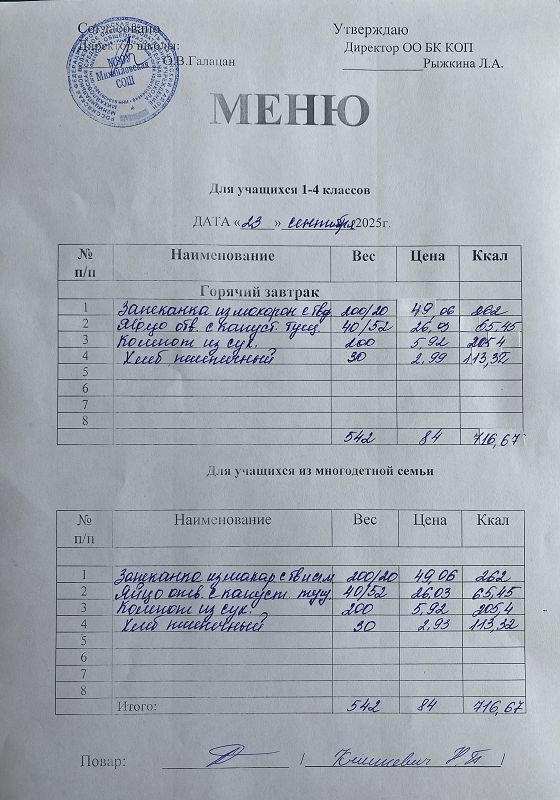 Согласовано Утверждаю
Директор школы: Директор ОО БК КОП
О.В.Галацан Рыжкина Л.А.
МБОУ
Михайловская
СОШ
МЕНЮ
Для учащихся 1-4 классов
ДАТА «23» сентября 2025г.
№ п/п Наименование Вес Цена Ккал
Горячий завтрак
1 Запеканка из макарон с тв 200/20 49,06 262
2 Яйцо отв. с капуст. туш. 40/52 26,03 65,45
3 Компот из сух. 200 5,92 205,4
4 Хлеб пшеничный 30 2,99 113,32
5
6
7
8
542 84 716,67
Для учащихся из многодетной семьи
№ п/п Наименование Вес Цена Ккал
1 Запеканка из макар с 200/20 49,06 262
2 Яйцо отв. с капуст. туш 40/52 26,03 65,45
3 Компот из сух. 200 5,92 205,4
4 Хлеб пшеничный 30 2,93 113,32
5
6
7
8
Итого: 542 84 716,67
Повар: / /